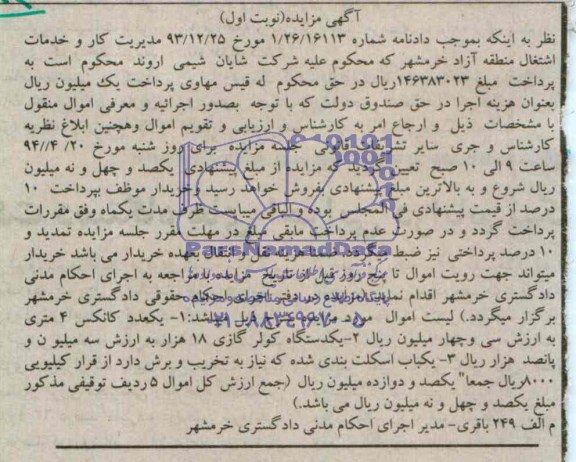 آگهی مزایده(نوبت اول)
نظر به اینکه بموجب دادنامه شماره ۱/۲۶/۱۶۱۱۳ مورخ ۹۳/۱۲/۲۵ مدیریت کار و خدمات
اشتغال منطقه آزاد خرمشهر که محکوم علیه شرکت شایان شیمی اروند محکوم است به
پرداخت مبلغ ۱۴۶۳۸۳۰۲۳ریال در حق محکوم له قیس مهاوی پرداخت یک میلیون ریال
بعنوان هزینه اجرا در حق صندوق دولت که با توجه بصدور اجرائیه و معرفی اموال منقول
با مشخصات ذیل و ارجاع امر به کارشناس و ارزیابی و تقویم اموال وهچنین ابلاغ نظریه
کارشناس و جری سایر تشریفات قانونی جلسه مزایده برای روز شنبه مورخ ۲۰ /۹۴/۴
ساعت ۹ الی ۱۰ صبح تعیین گردید که مزایده از مبلغ پیشنهادی یکصد و چهل و نه میلیون
ریال شروع و به بالاترین مبلغ پیشنهادی بفروش خواهد رسید وخریدار موظف بپرداخت ۱۰
درصد از قیمت پیشنهادی فی المجلس بوده و الباقی میبایست ظرف مدت یکماه وفق مقررات
پرداخت گردد و در صورت عدم پرداخت مابقی مبلغ در مهلت مقرر جلسه مزایده تمدید و
۱۰ درصد پرداختی نیز ضبط میگردد ضمنا هزینه نقل و انتقال بعهده خریدار می باشد خریدار
میتواند جهت رویت اموال تا پنج روز قبل از تاریخ مزایده با مراجعه به اجرای احکام مدنی
دادگستری خرمشهر اقدام نماید مزایده در دفتر اجرای احکام حقوقی دادگستری خرمشهر
برگزار میگردد.) لیست اموال مورد مزایده بشرح ذیل میباشد:۱- یکعدد کانکس ۴ متری
به ارزش سی وچهار میلیون ریال ۲-یکدستگاه کولر گازی ۱۸ هزار به ارزش سه میلیو ن و
پانصد هزار ریال ۳- یکباب اسکلت بندی شده که نیاز به تخریب و برش دارد از قرار کیلویی
۸۰۰۰ریال جمعا" یکصد و دوازده میلیون ریال (جمع ارزش کل اموال ۵ ردیف توقیفی مذکور
مبلغ یکصد و چهل و نه میلیون ریال می باشد.)
م الف ۲۴۹ باقری- مدیر اجرای احکام مدنی دادگستری خرمشهر
ParsNamadData
۰۲۱-۸۸۳۴۹۶۷۰-۵